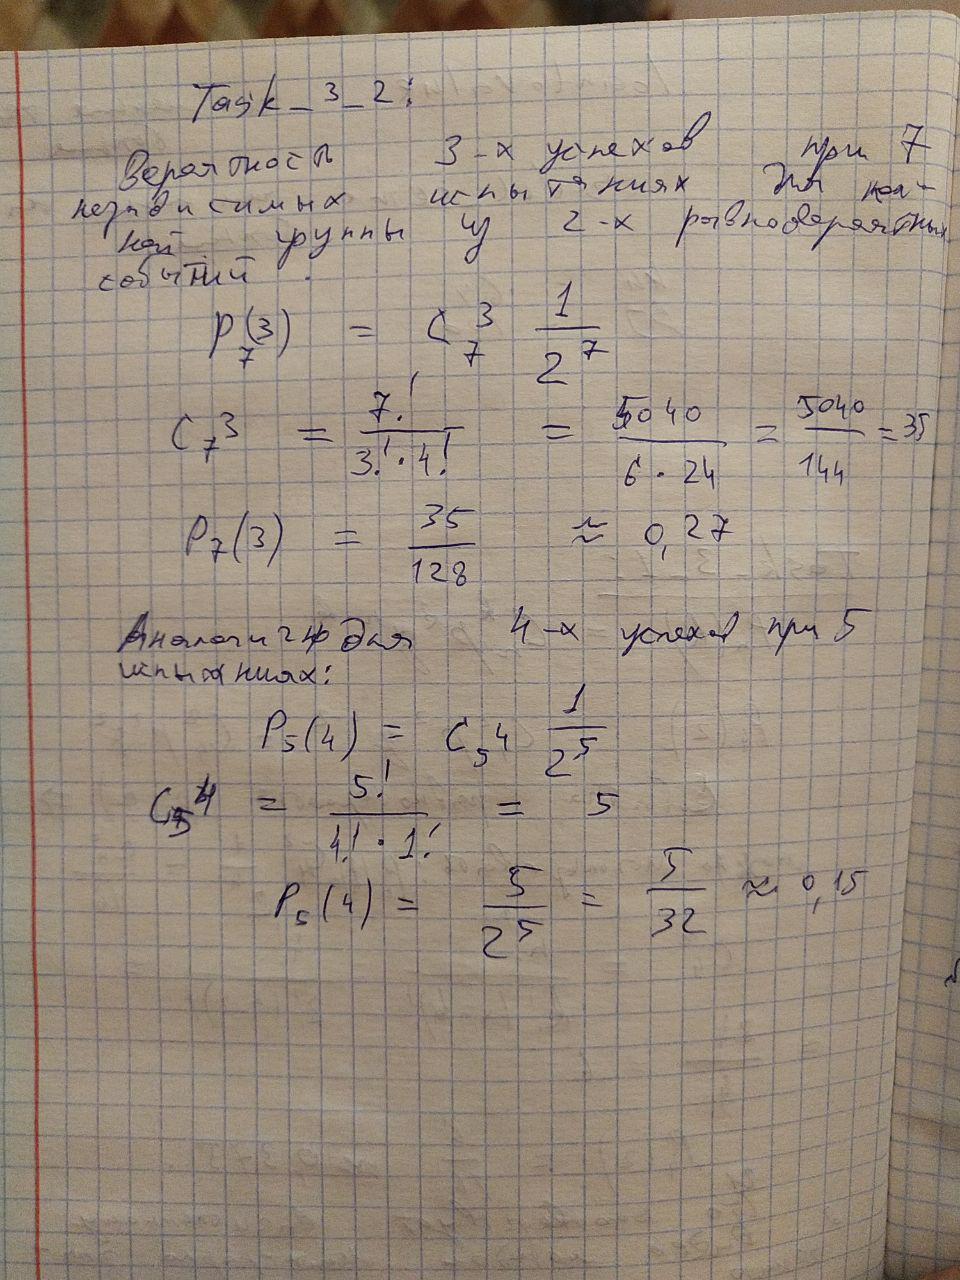 Task_3_2:
Вероятность 3-х успехов при 7
независимых испытаниях для пол-
ной группы из 2-х равновероятных
событий.
P_7(3) = C_7^3 1/2^7
C_7^3 = 7!/(3!·4!) = 5040/(6·24) = 5040/144 = 35
P_7(3) = 35/128 ≈ 0,27
Аналогично для 4-х успехов при 5
испытаниях:
P_5(4) = C_5^4 1/2^5
C_5^4 = 5!/(4!·1!) = 5
P_5(4) = 5/2^5 = 5/32 ≈ 0,15